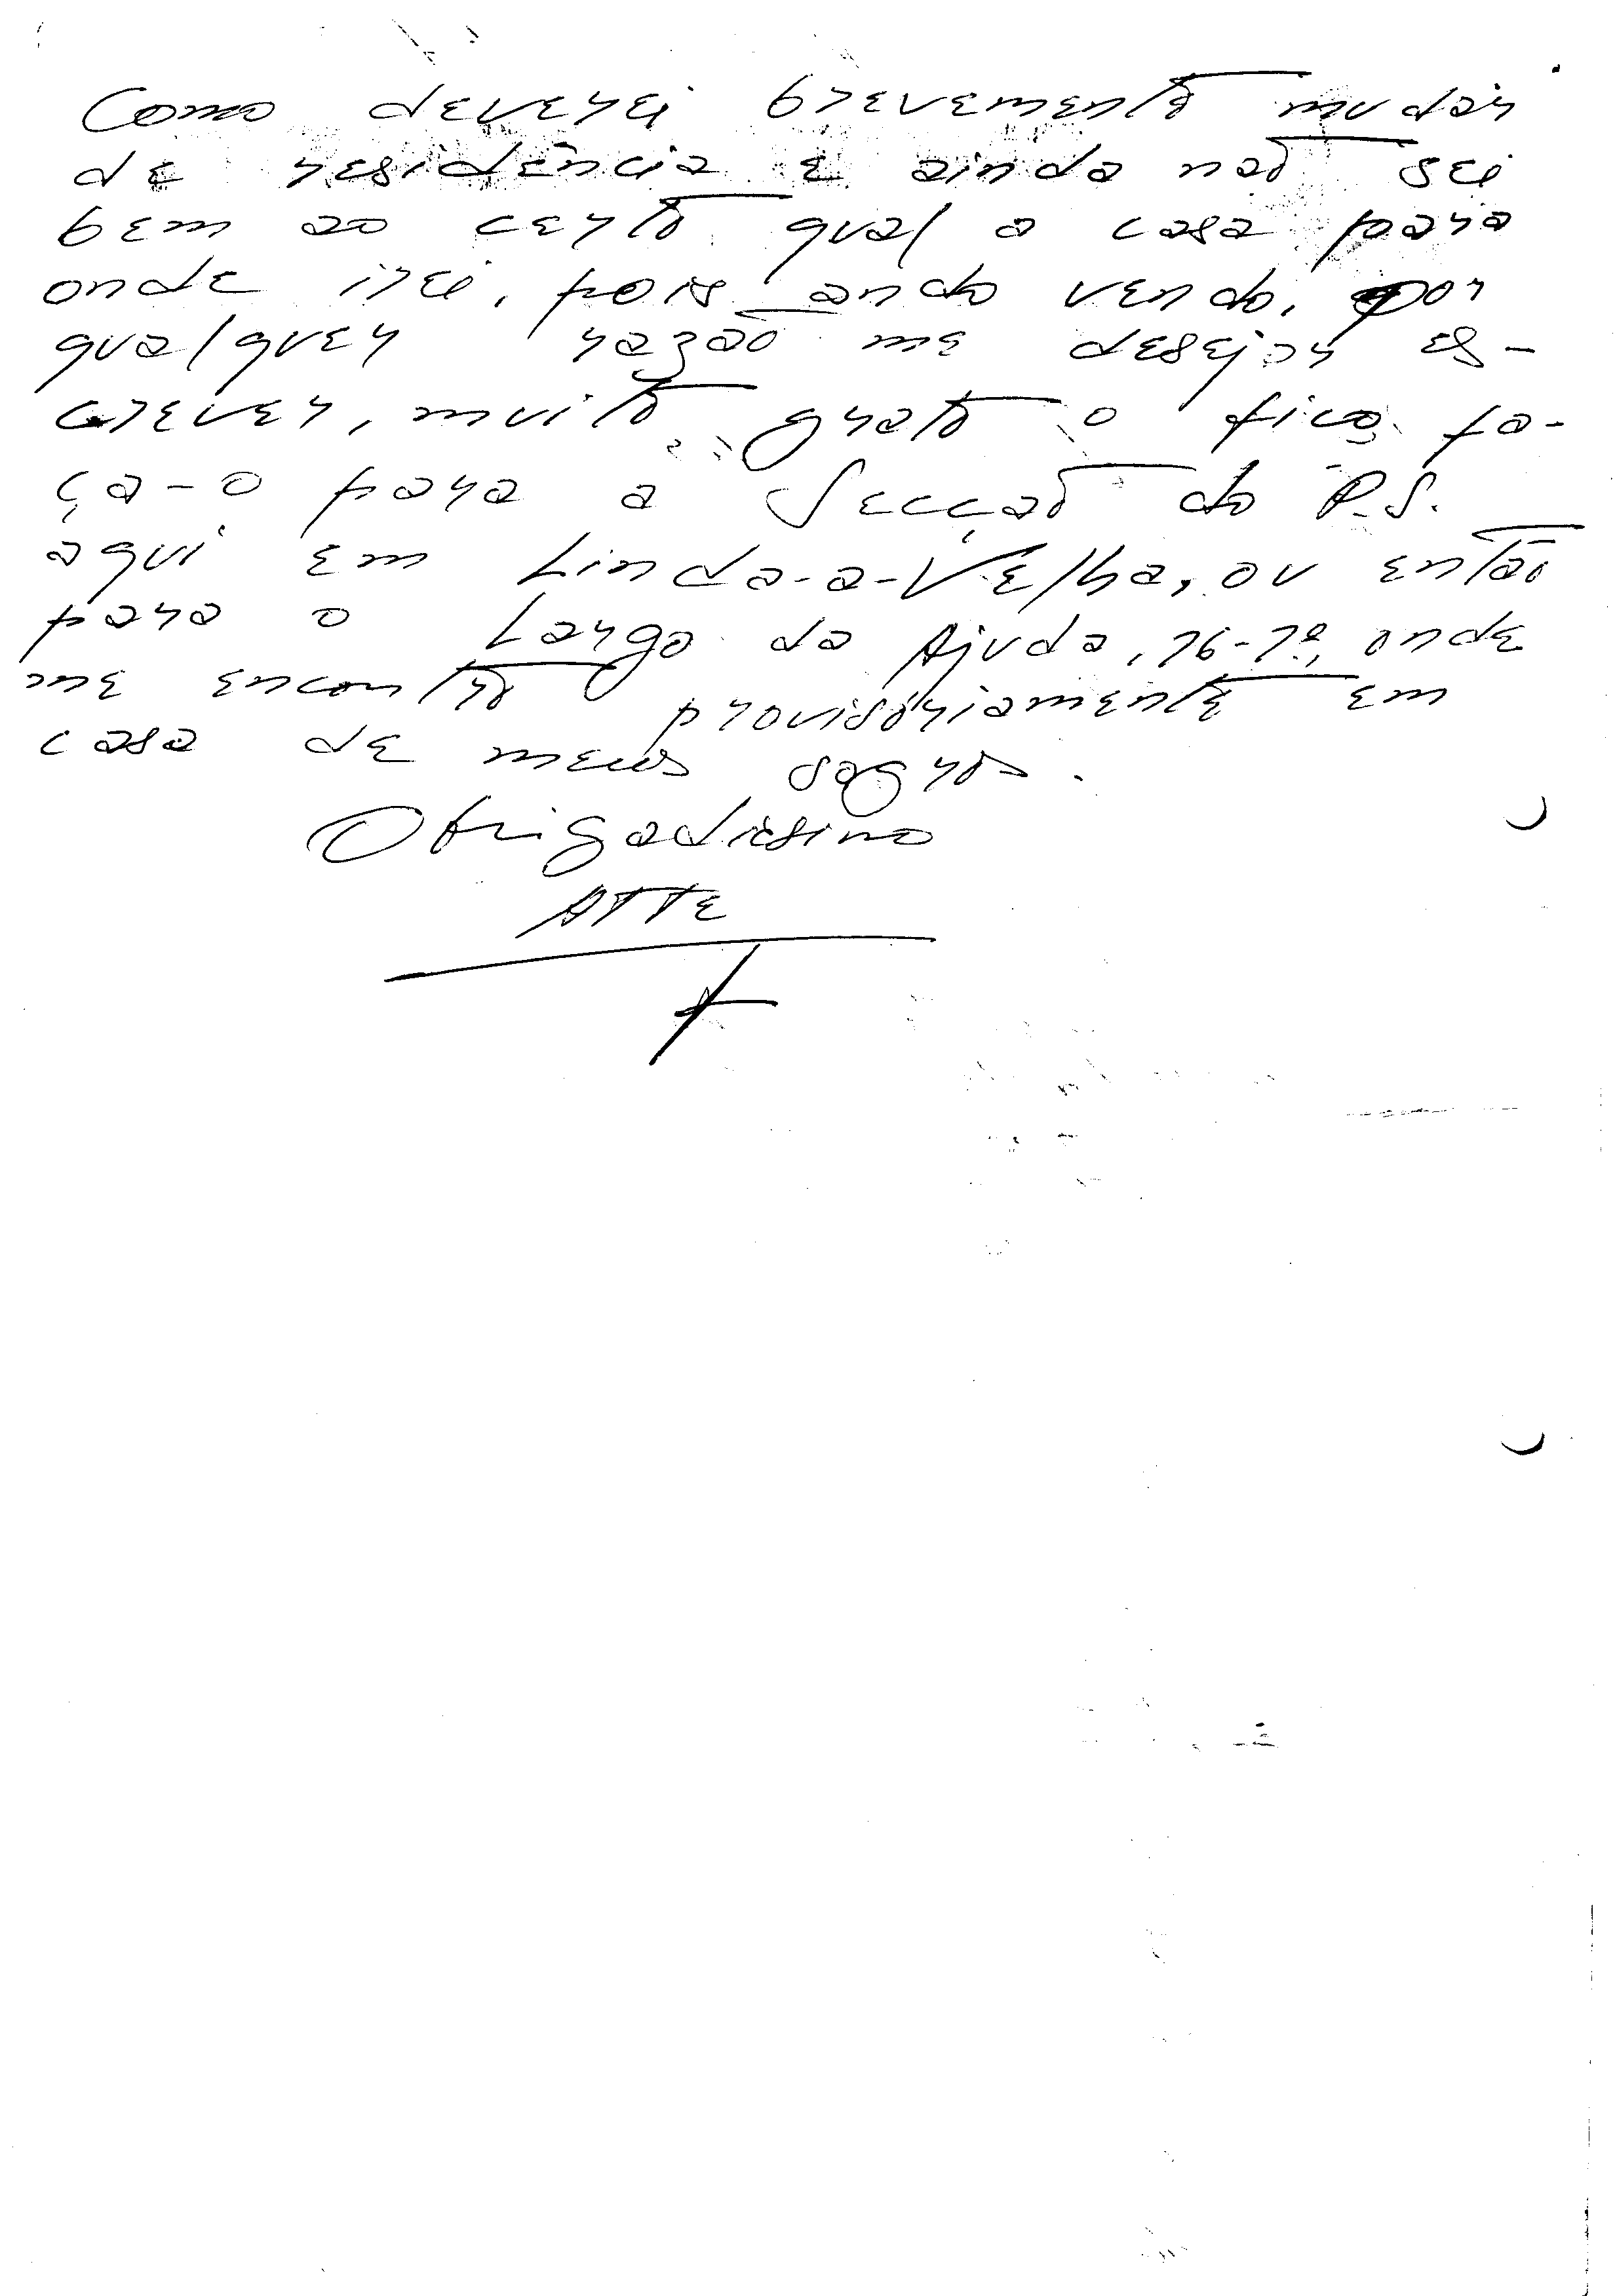 Como deverei brevemente mudar
de residência e ainda não sei
bem ao certo qual a casa para
onde irei, pois ando vendo, por
qualquer razão me desejar es-
crever, muito grato o fico fa-
ça-o para a Secção do P.S.
aqui em Linda-a-Velha, ou então
para o Largo da Ajuda, 16-1º, onde
me encontro provisóriamente em
casa de meus sogros.
Obrigadissimo
ATTE